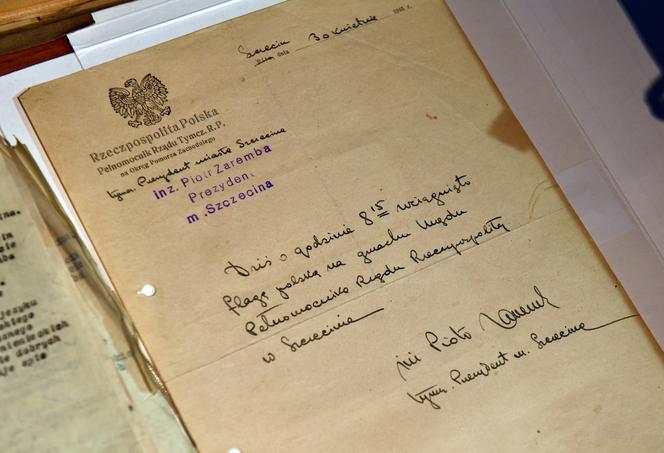 Szczecin
dnia 30 kwietnia 1945 r.
Rzeczpospolita Polska
Pełnomocnik Rządu Tymcz. R. P.
na Okręg Pomorza Zachodniego
tymcz. Prezydent miasta Szczecina
inż. Piotr Zaremba
Prezydent
m. Szczecina
Dziś o godzinie 8 15 wciągnięto
flagę polską na gmachu Urzędu
Pełnomocnika Rządu Rzeczypospolitej
w Szczecinie
inż Piotr Zaremba
tymcz. Prezydent m. Szczecina